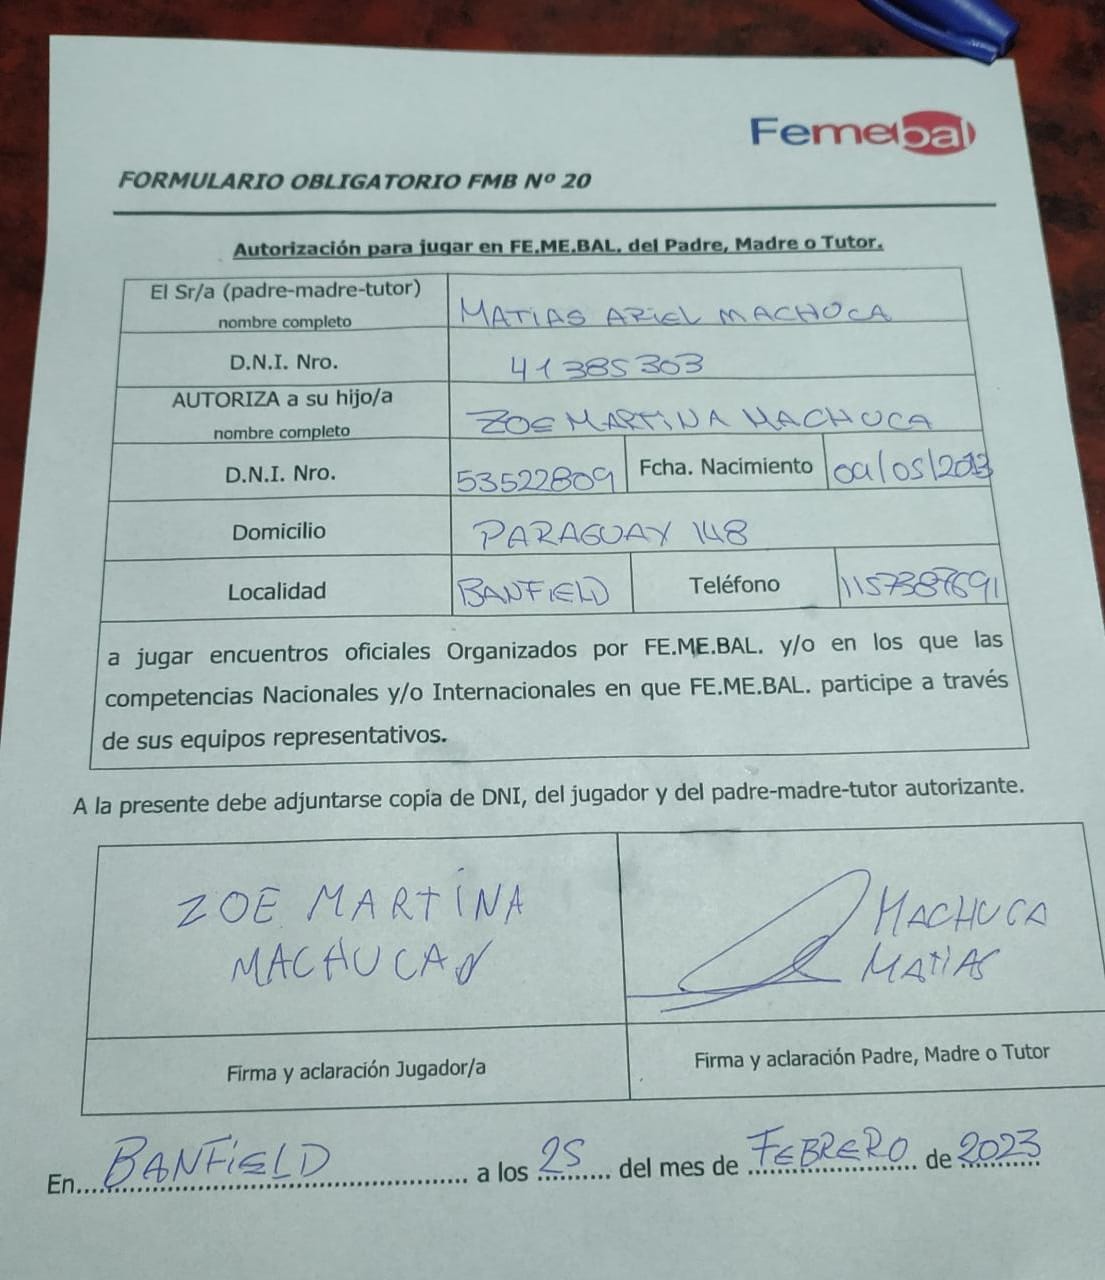 Femebal
FORMULARIO OBLIGATORIO FMB Nº 20
Autorización para jugar en FE.ME.BAL. del Padre, Madre o Tutor.
El Sr/a (padre-madre-tutor)
nombre completo
MATIAS ARIEL MACHOCA
D.N.I. Nro.
41385303
AUTORIZA a su hijo/a
nombre completo
ZOE MARTINA MACHUCA
D.N.I. Nro.
53522809
Fcha. Nacimiento
09/05/2013
Domicilio
PARAGUAY 148
Localidad
BANFIELD
Teléfono
1157387691
a jugar encuentros oficiales Organizados por FE.ME.BAL. y/o en los que las
competencias Nacionales y/o Internacionales en que FE.ME.BAL. participe a través
de sus equipos representativos.
A la presente debe adjuntarse copia de DNI, del jugador y del padre-madre-tutor autorizante.
ZOE MARTINA
MACHUCA
MACHUCA
MATIAS
Firma y aclaración Jugador/a
Firma y aclaración Padre, Madre o Tutor
En.... BANFIELD .... a los 25 .... del mes de FEBRERO .... de 2023